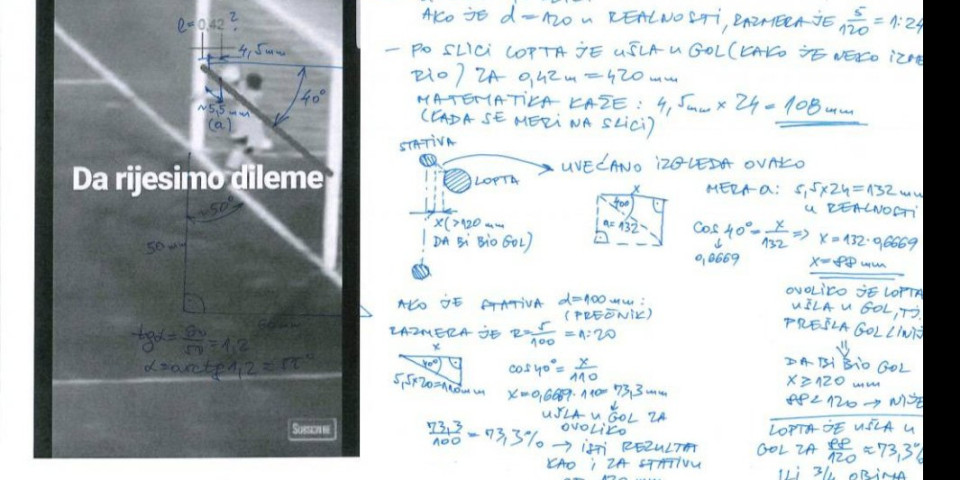 l = 0,42 ?
4,5mm
40°
~5,5mm
(a)
Da rijesimo dileme
~50°
50 mm
60mm
tgα = 60/50 = 1,2
α = arctg 1,2 = 50°
SUBSCRIBE
AKO JE d = 120 u REALNOSTI, RAZMERA JE 5/120 = 1:24
- PO SLICI LOPTA JE UŠLA U GOL (KAKO JE NEKO IZME
RIO) ZA 0,42 m = 420 mm
MATEMATIKA KAŽE: 4,5mm x 24 = 108 mm
(KADA SE MERI NA SLICI)
STATIVA
LOPTA
UVEĆANO IZGLEDA OVAKO
X (>120 mm
DA BI BIO GOL)
x
40°
a=132
MERA a: 5,5x24 = 132 mm
u REALNOSTI
cos 40° = x/132 => x = 132·0,6669
0,6669
x = 88 mm
OVOLIKO JE LOPTA
UŠLA U GOL, TJ.
PREŠLA GOL LINIJ
DA BI BIO GOL
X ≥ 120 mm
88 < 120 → NIJE
LOPTA JE UŠLA U
GOL ZA 88/120 ≈ 73,3%
ILI 3/4 OBIMA
AKO JE STATIVA d = 100 mm:
(PREČNIK)
RAZMERA JE R = 5/100 = 1:20
x
40°
5,5x20=110mm
cos 40° = x/110
x = 0,6669·110 = 73,3 mm
UŠLA U GOL ZA
OVOLIKO
73,3/100 = 73,3% → ISTI REZULTAT
KAO I ZA STATIVU